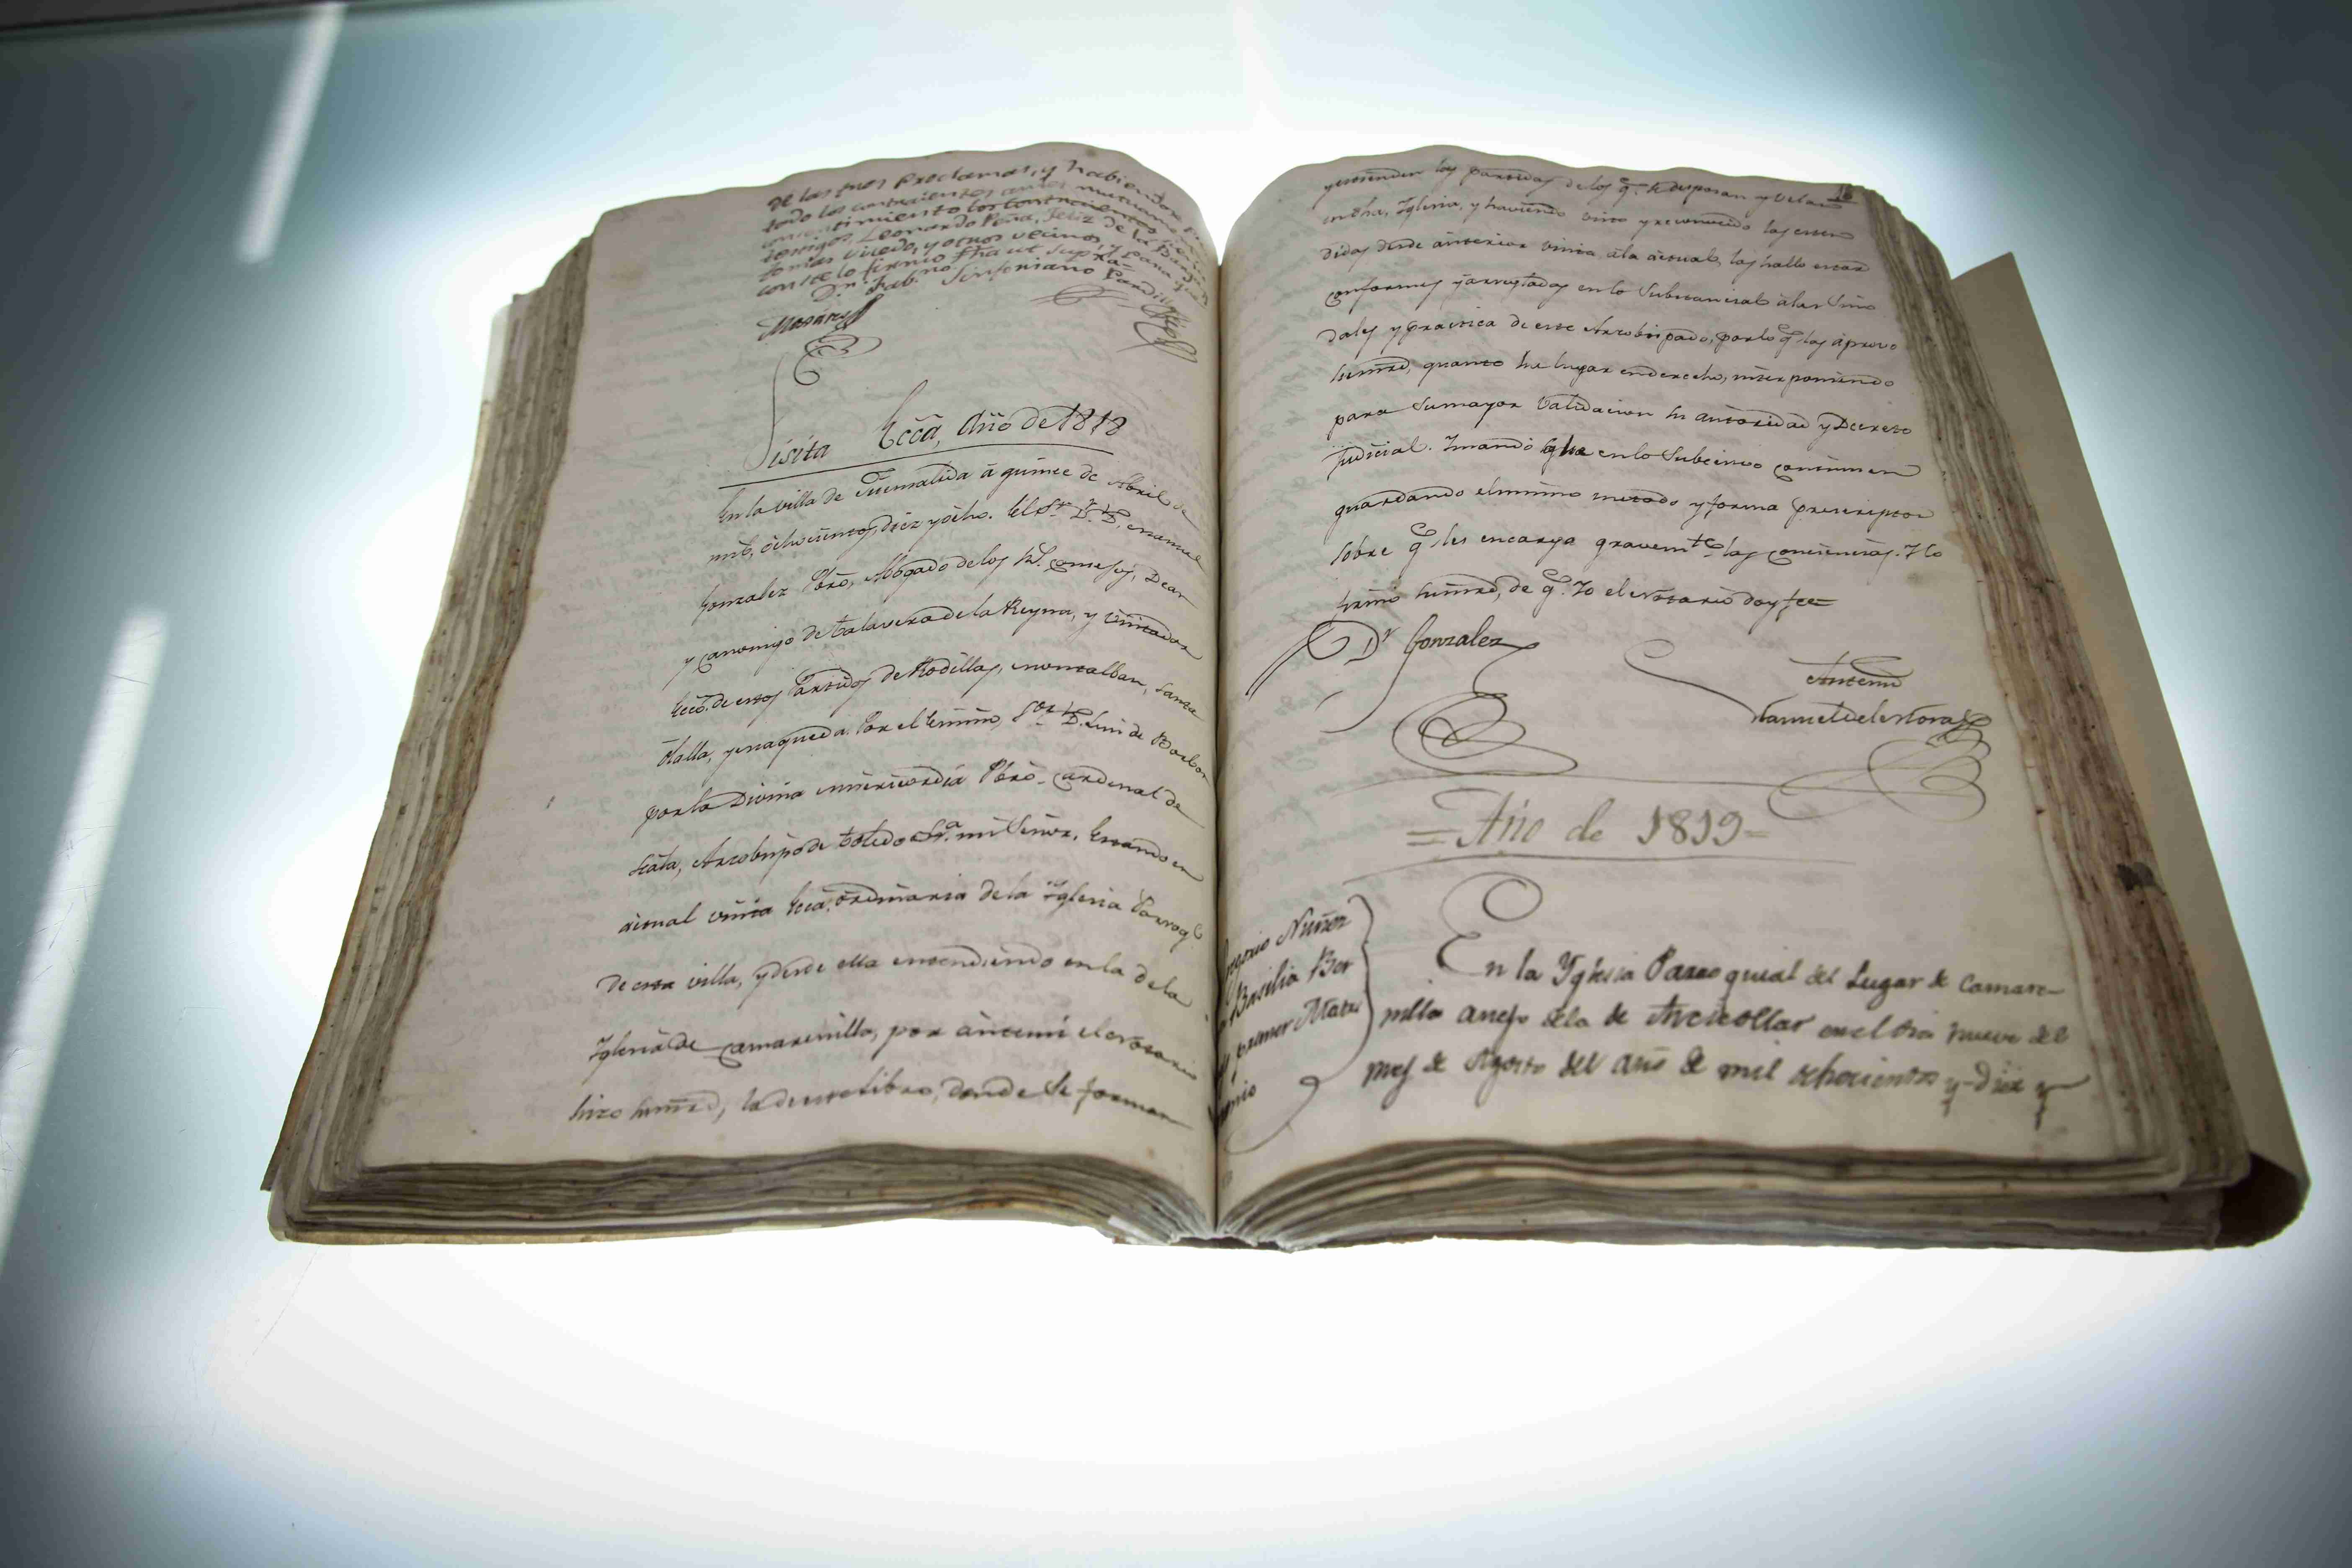 de las tres Proclamas, y habiendo
todo los contraientes antes mutuo
consentimiento los contraientes
testigos, Leonardo Peña, Feliz de la
tomas Viuedo, y otros vecinos, y para que
conste lo firmo fha ut supra=
Dn. Fab.no Sinforiano Pardillo
Visita Ecca, Año de 1818
En la villa de Fuensalida à quince de Abril de
mil, ochocientos, diez y ocho. El Sr. D.r D. Manuel
Gonzalez Pbro, Abogado de los Rs. Consejos, Dean
y Canonigo de Talavera de la Reyna, y Visitador
Ecco. de estos Partidos de Rodillas, Montalban, Santa
Olalla, y Maqueda Por el Emmo, S.or D. Luis de Borbon
por la Divina misericordia Pbro. Cardenal de
Scala, Arzobispo de Toledo Sr.a mi Señor. Estando en
actual visita Ecca. ordinaria de la Iglesia Parroq.l
de esta villa, y desde ella entendiendo en la de la
Iglesia de Camarenilla, por ante mi el Notario
hizo su mrd, la de este libro, donde se forman
16
y estienden las partidas de los q. se desposan y velan
en dha, Iglesia, y haviendo visto y reconocido las esten
didas desde anterior visita, à la actual, las hallo estar
conformes y arregladas en lo Substancial à las Sino
dales y practica de este Arzobispado, por lo q. las aprovo
su mrd, quanto ha lugar en derecho, interponiendo
para su mayor Validacion su autoridad y Decreto
judicial. Y mandò que en lo Subcesivo continuen
guardando el mismo metodo y forma prescriptos
sobre q. les encarga gravem.te las conciencias. Y lo
firmò su mrd, de q. Yo el Notario doy fee=
Dr Gonzalez
Antemi
Manuel del Moral
=Año de 1819=
Gregorio Nuñez
Basilia Ber
primer Matri
monio
En la Yglesia Parroquial del Lugar de Camare-
nilla anejo dela de Arcicollar en el dia nueve del
mes de Agosto del año de mil ochocientos y diez y